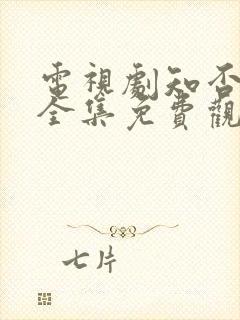 電視劇知否
全集免費觀
七片